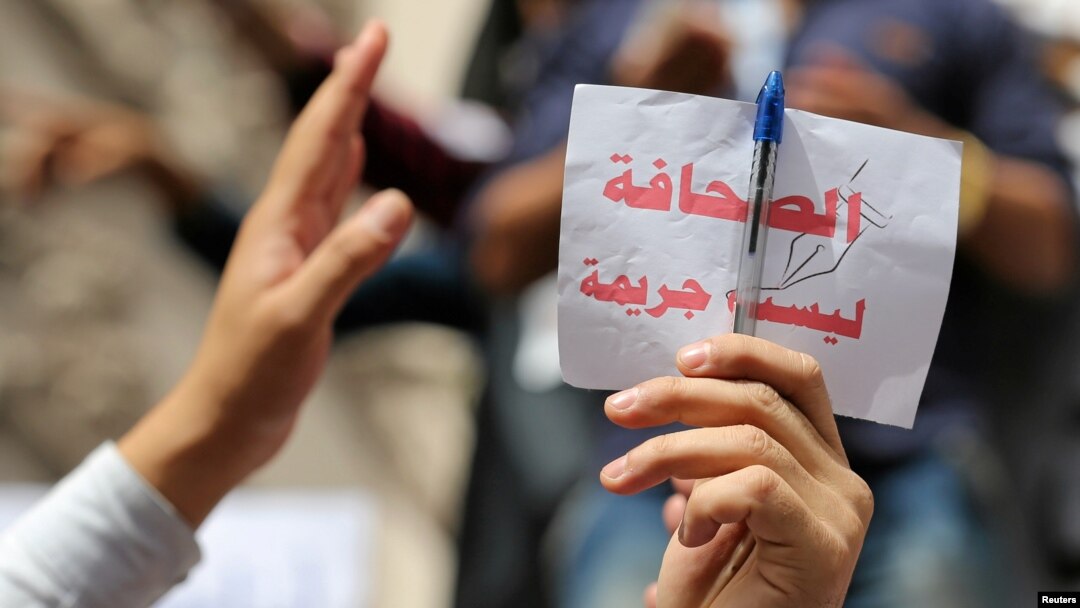 الصحافة
ليست جريمة
Reuters